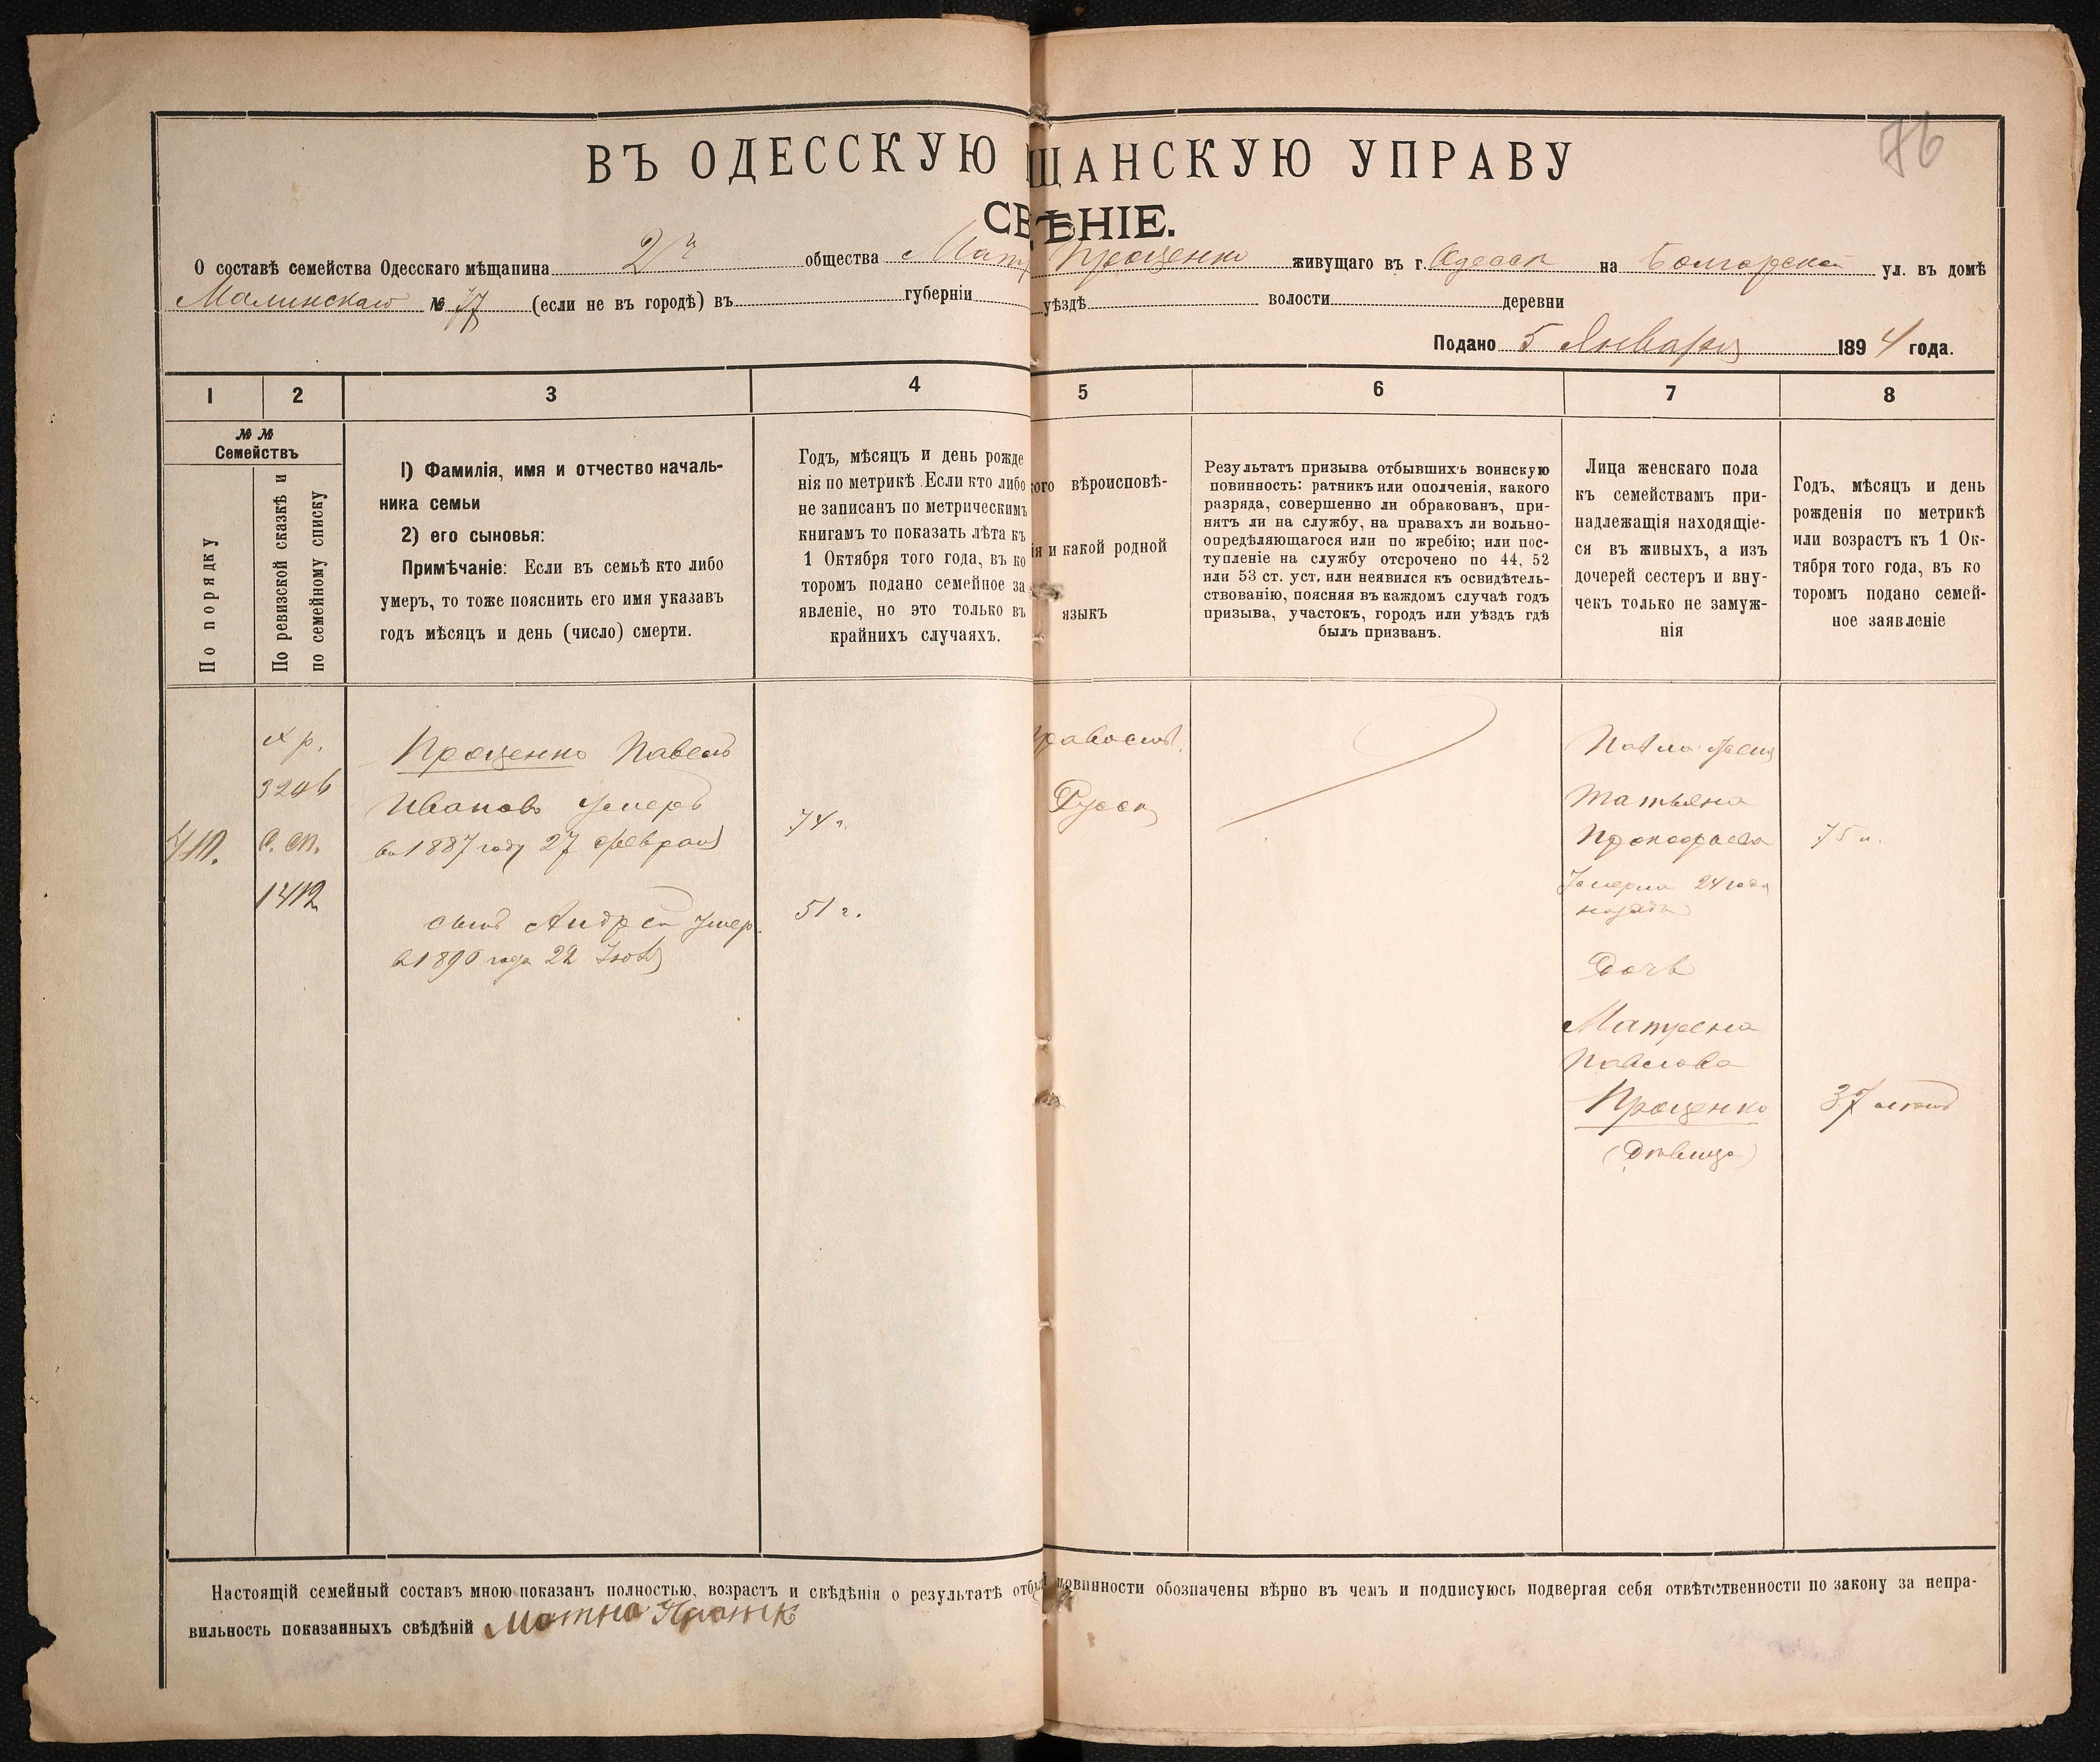 76
ВЪ ОДЕССКУЮ ЩАНСКУЮ УПРАВУ
СВѢНІЕ.
О составѣ семейства Одесскаго мѣщанина 2й общества Матр Проценко живущаго въ г. Одессѣ на Болгарской ул. въ домѣ
Малинскаго № 77 (если не въ городѣ) въ губерніи уѣздѣ волости деревни
Подано 5 Января 1894 года.
1 2 3 4 5 6 7 8
№ №
Семействъ
По порядку
По ревизской сказкѣ и
по семейному списку
1) Фамилія, имя и отчество началь-
ника семьи
2) его сыновья:
Примѣчаніе: Если въ семьѣ кто либо
умеръ, то тоже пояснить его имя указавъ
годъ мѣсяцъ и день (число) смерти.
Годъ, мѣсяцъ и день рожде
нія по метрикѣ. Если кто либо
не записанъ по метрическимъ
книгамъ то показать лѣта къ
1 Октября того года, въ ко
торомъ подано семейное за
явленіе, но это только въ
крайнихъ случаяхъ.
ого вѣроисповѣ-
ія и какой родной
языкъ
Результатъ призыва отбывшихъ воинскую
повинность: ратникъ или ополченія, какого
разряда, совершенно ли обракованъ, при-
нятъ ли на службу, на правахъ ли вольно-
опредѣляющагося или по жребію; или пос-
тупленіе на службу отсрочено по 44, 52
или 53 ст. уст. или неявился къ освидѣтель-
ствованію, поясняя въ каждомъ случаѣ годъ
призыва, участокъ, городъ или уѣздъ гдѣ
былъ призванъ.
Лица женскаго пола
къ семействамъ при-
надлежащія находящіе-
ся въ живыхъ, а изъ
дочерей сестеръ и вну-
чекъ только не замуж-
нія
Годъ, мѣсяцъ и день
рожденія по метрикѣ
или возрастъ къ 1 Ок-
тября того года, въ ко
торомъ подано семей-
ное заявленіе
р.
с. сп.
1412
Проценко Павелъ
Ивановъ Умеръ
въ 1887 году 27 февраля
74 г.
сынъ Андрей Умер.
в 1890 года 22
51 г.
равослав.
Русск
Павла
Татьяна
Прокофьева
Умерла 24 года
назадъ
75 л.
Дочь
Матрена
Павлова
Проценко
37 летъ
(Дѣвица)
Настоящій семейный составъ мною показанъ полностью, возрастъ и свѣдѣнія о результатѣ отбы повинности обозначены вѣрно въ чемъ и подписуюсь подвергая себя отвѣтственности по закону за непра-
вильность показанныхъ свѣдѣній